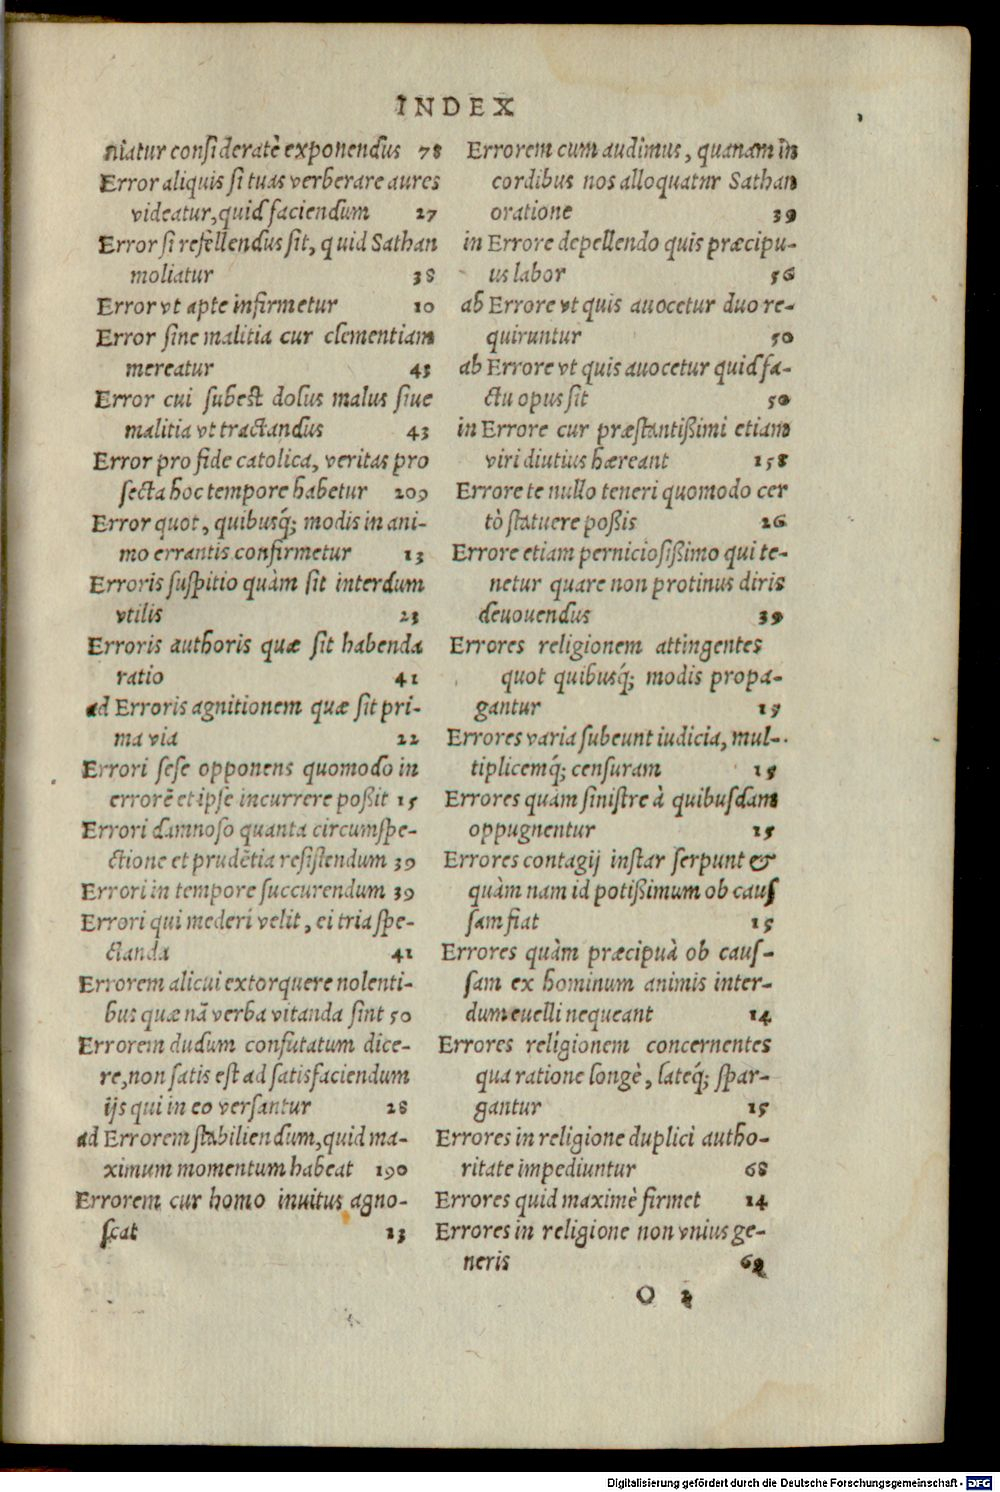 INDEX
niatur consideratè exponendus 78
Error aliquis si tuas verberare aures
videatur, quid faciendum 27
Error si refellendus sit, quid Sathan
moliatur 38
Error vt apte infirmetur 10
Error sine malitia cur clementiam
mereatur 43
Error cui subest dolus malus siue
malitia vt tractandus 43
Error pro fide catolica, veritas pro
secta hoc tempore habetur 209
Error quot, quibusq́; modis in ani-
mo errantis confirmetur 13
Erroris suspitio quàm sit interdum
vtilis 23
Erroris authoris quæ sit habenda
ratio 41
ad Erroris agnitionem quæ sit pri-
ma via 22
Errori sese opponens quomodo in
errorē et ipse incurrere poßit 15
Errori damnoso quanta circumspe-
ctione et prudētia resistendum 39
Errori in tempore succurendum 39
Errori qui mederi velit, ei tria spe-
ctanda 41
Errorem alicui extorquere nolenti-
bus quæ nā verba vitanda sint 50
Errorem dudum confutatum dice-
re, non satis est ad satisfaciendum
ijs qui in eo versantur 28
ad Errorem stabiliendum, quid ma-
ximum momentum habeat 190
Errorem cur homo inuitus agno-
scat 13
Errorem cum audimus, quanam in
cordibus nos alloquatnr Sathan
oratione 39
in Errore depellendo quis præcipu-
us labor 56
ab Errore vt quis auocetur duo re-
quiruntur 50
ab Errore vt quis auocetur quid fa-
ctu opus sit 50
in Errore cur præstantißimi etiam
viri diutius hæreant 158
Errore te nullo teneri quomodo cer
tò statuere poßis 26
Errore etiam perniciosißimo qui te-
netur quare non protinus diris
deuouendus 39
Errores religionem attingentes
quot quibusq́; modis propa-
gantur 15
Errores varia subeunt iudicia, mul-
tiplicemq́; censuram 15
Errores quàm sinistre à quibusdam
oppugnentur 15
Errores contagij instar serpunt &
quàm nam id potißimum ob caus
sam fiat 15
Errores quàm præcipuà ob caus-
sam ex hominum animis inter-
dum euelli nequeant 14
Errores religionem concernentes
qua ratione longè, lateq́; spar-
gantur 15
Errores in religione duplici autho-
ritate impediuntur 68
Errores quid maximè firmet 14
Errores in religione non vnius ge-
neris 69
O 2
Digitalisierung gefördert durch die Deutsche Forschungsgemeinschaft - DFG